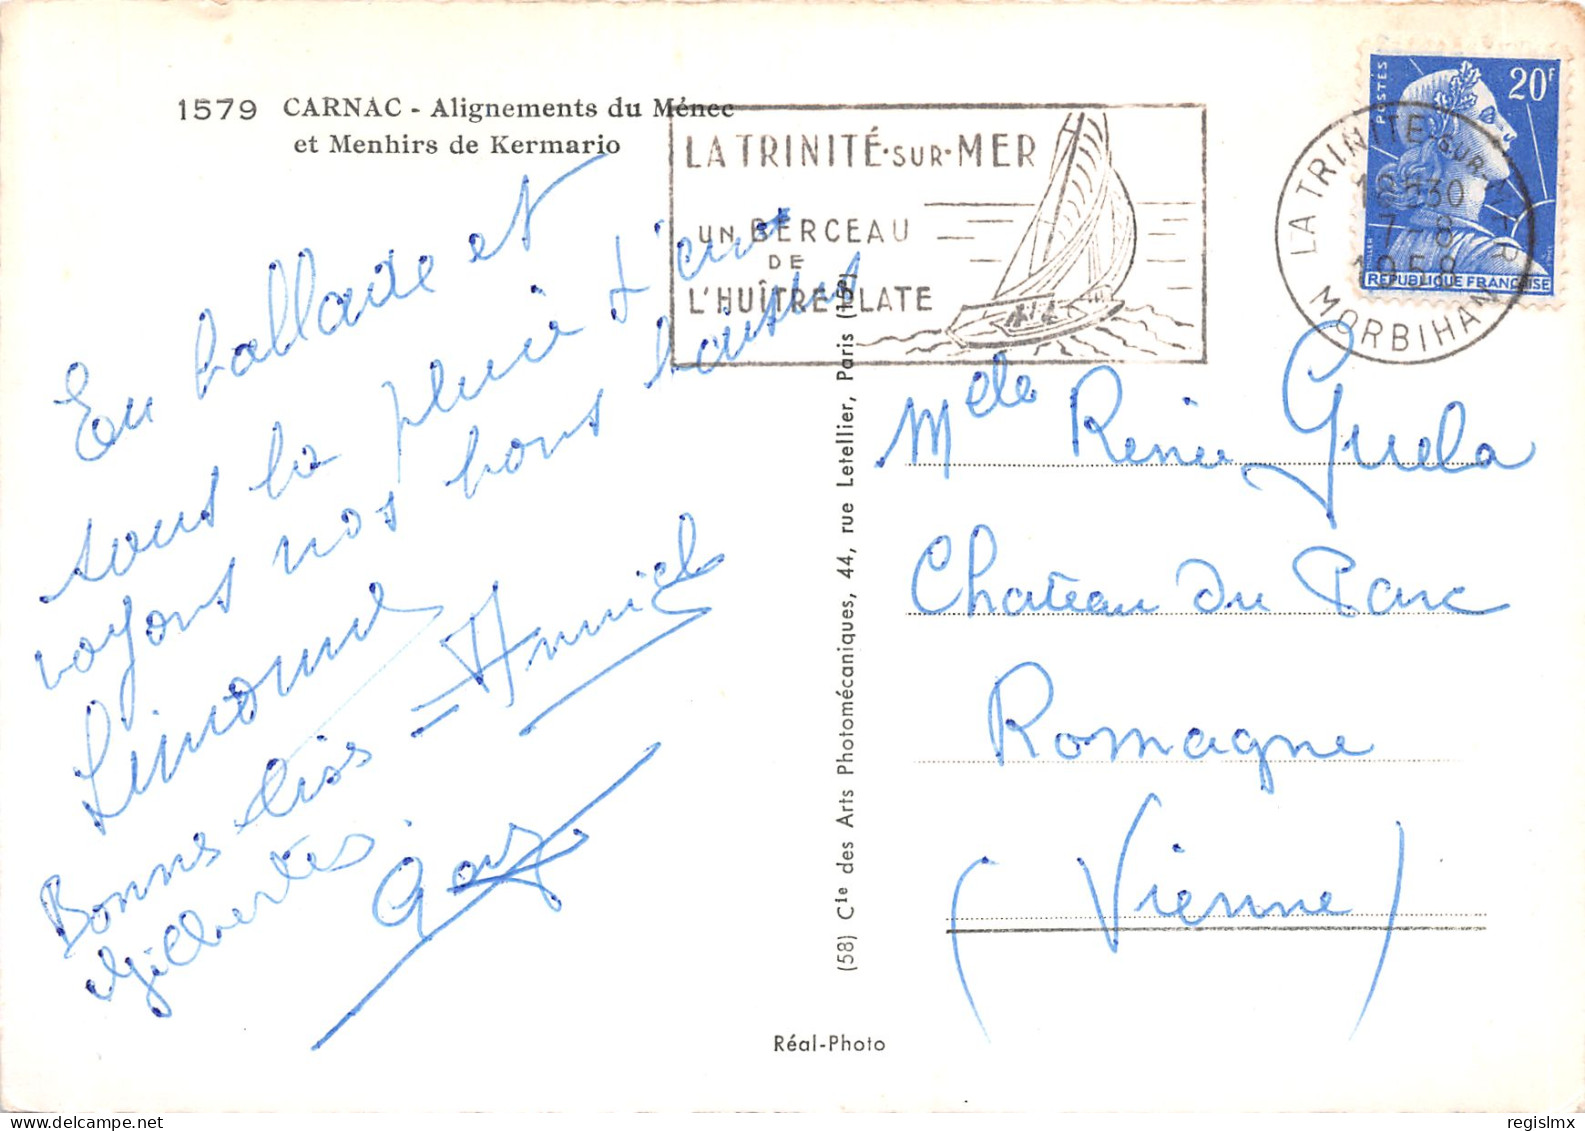 1579 CARNAC - Alignements du Ménec
et Menhirs de Kermario
LA TRINITÉ·SUR·MER
UN BERCEAU
DE
L'HUÎTRE PLATE
POSTES 20F
REPUBLIQUE FRANÇAISE
LA TRINITE-SUR-MER
30
7-8
1958
MORBIHAN
En ballade et
sous la pluie
voyons nos bons
Bonnes
Annick
Mdle Renée Guela
Chateau du Parc
Romagne
(Vienne)
(58) Cie des Arts Photomécaniques, 44, rue Letellier, Paris (15e)
Réal-Photo
regislmx